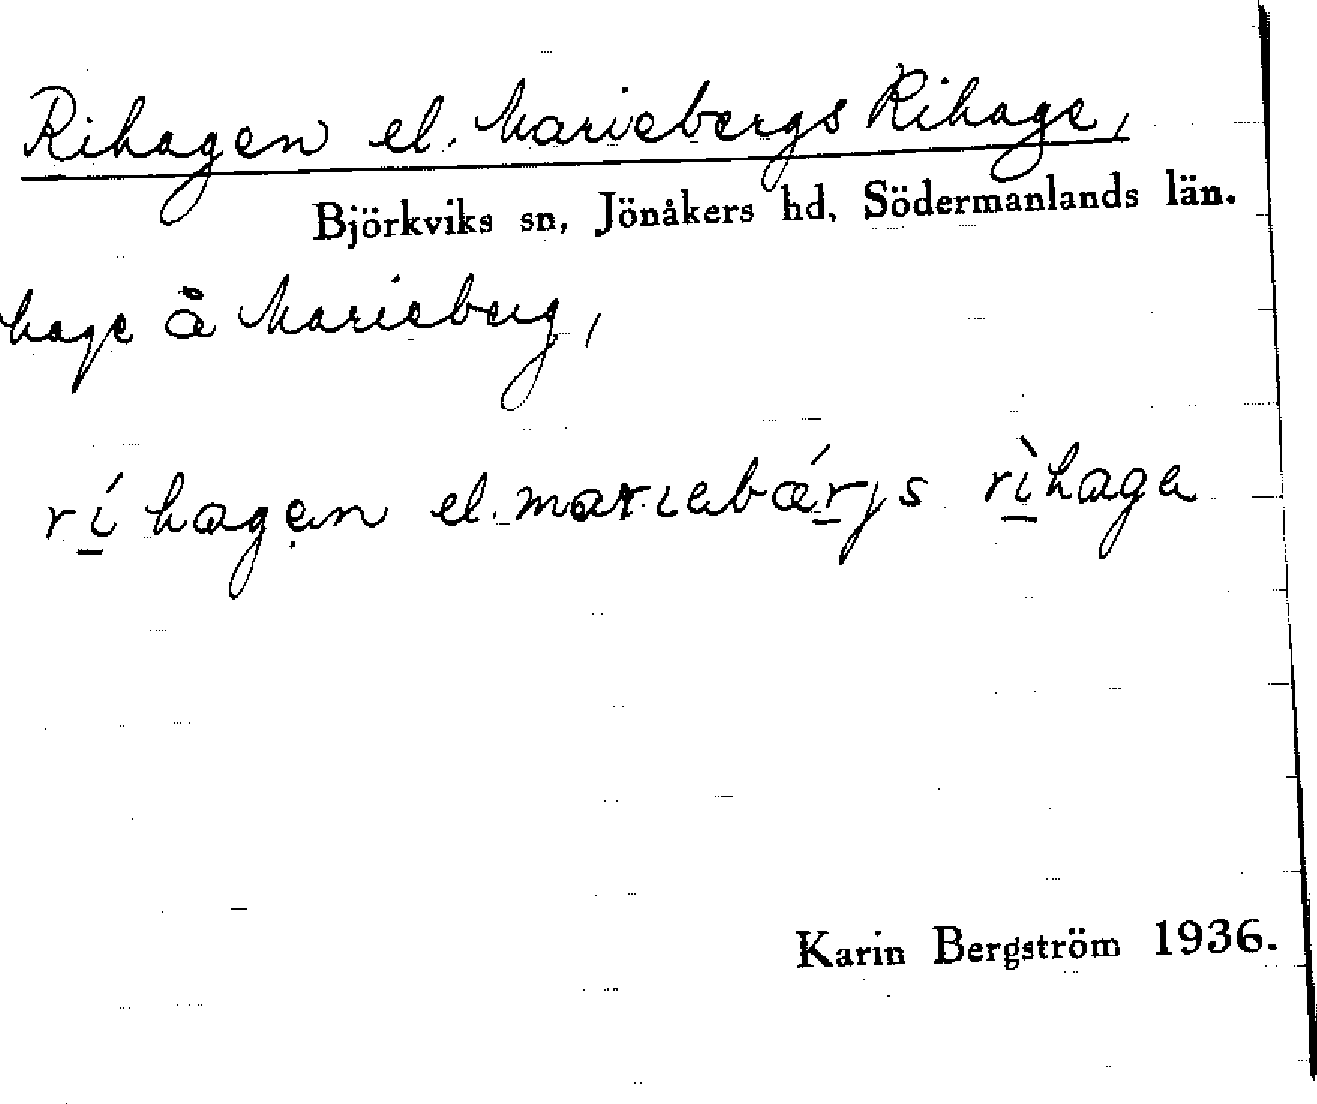 Rihagen el. Mariebergs Rihage,
Björkviks sn, Jönåkers hd, Södermanlands län.
hage å Marieberg,
rí hagen el. mariebǽrjs rìhage
Karin Bergström 1936.